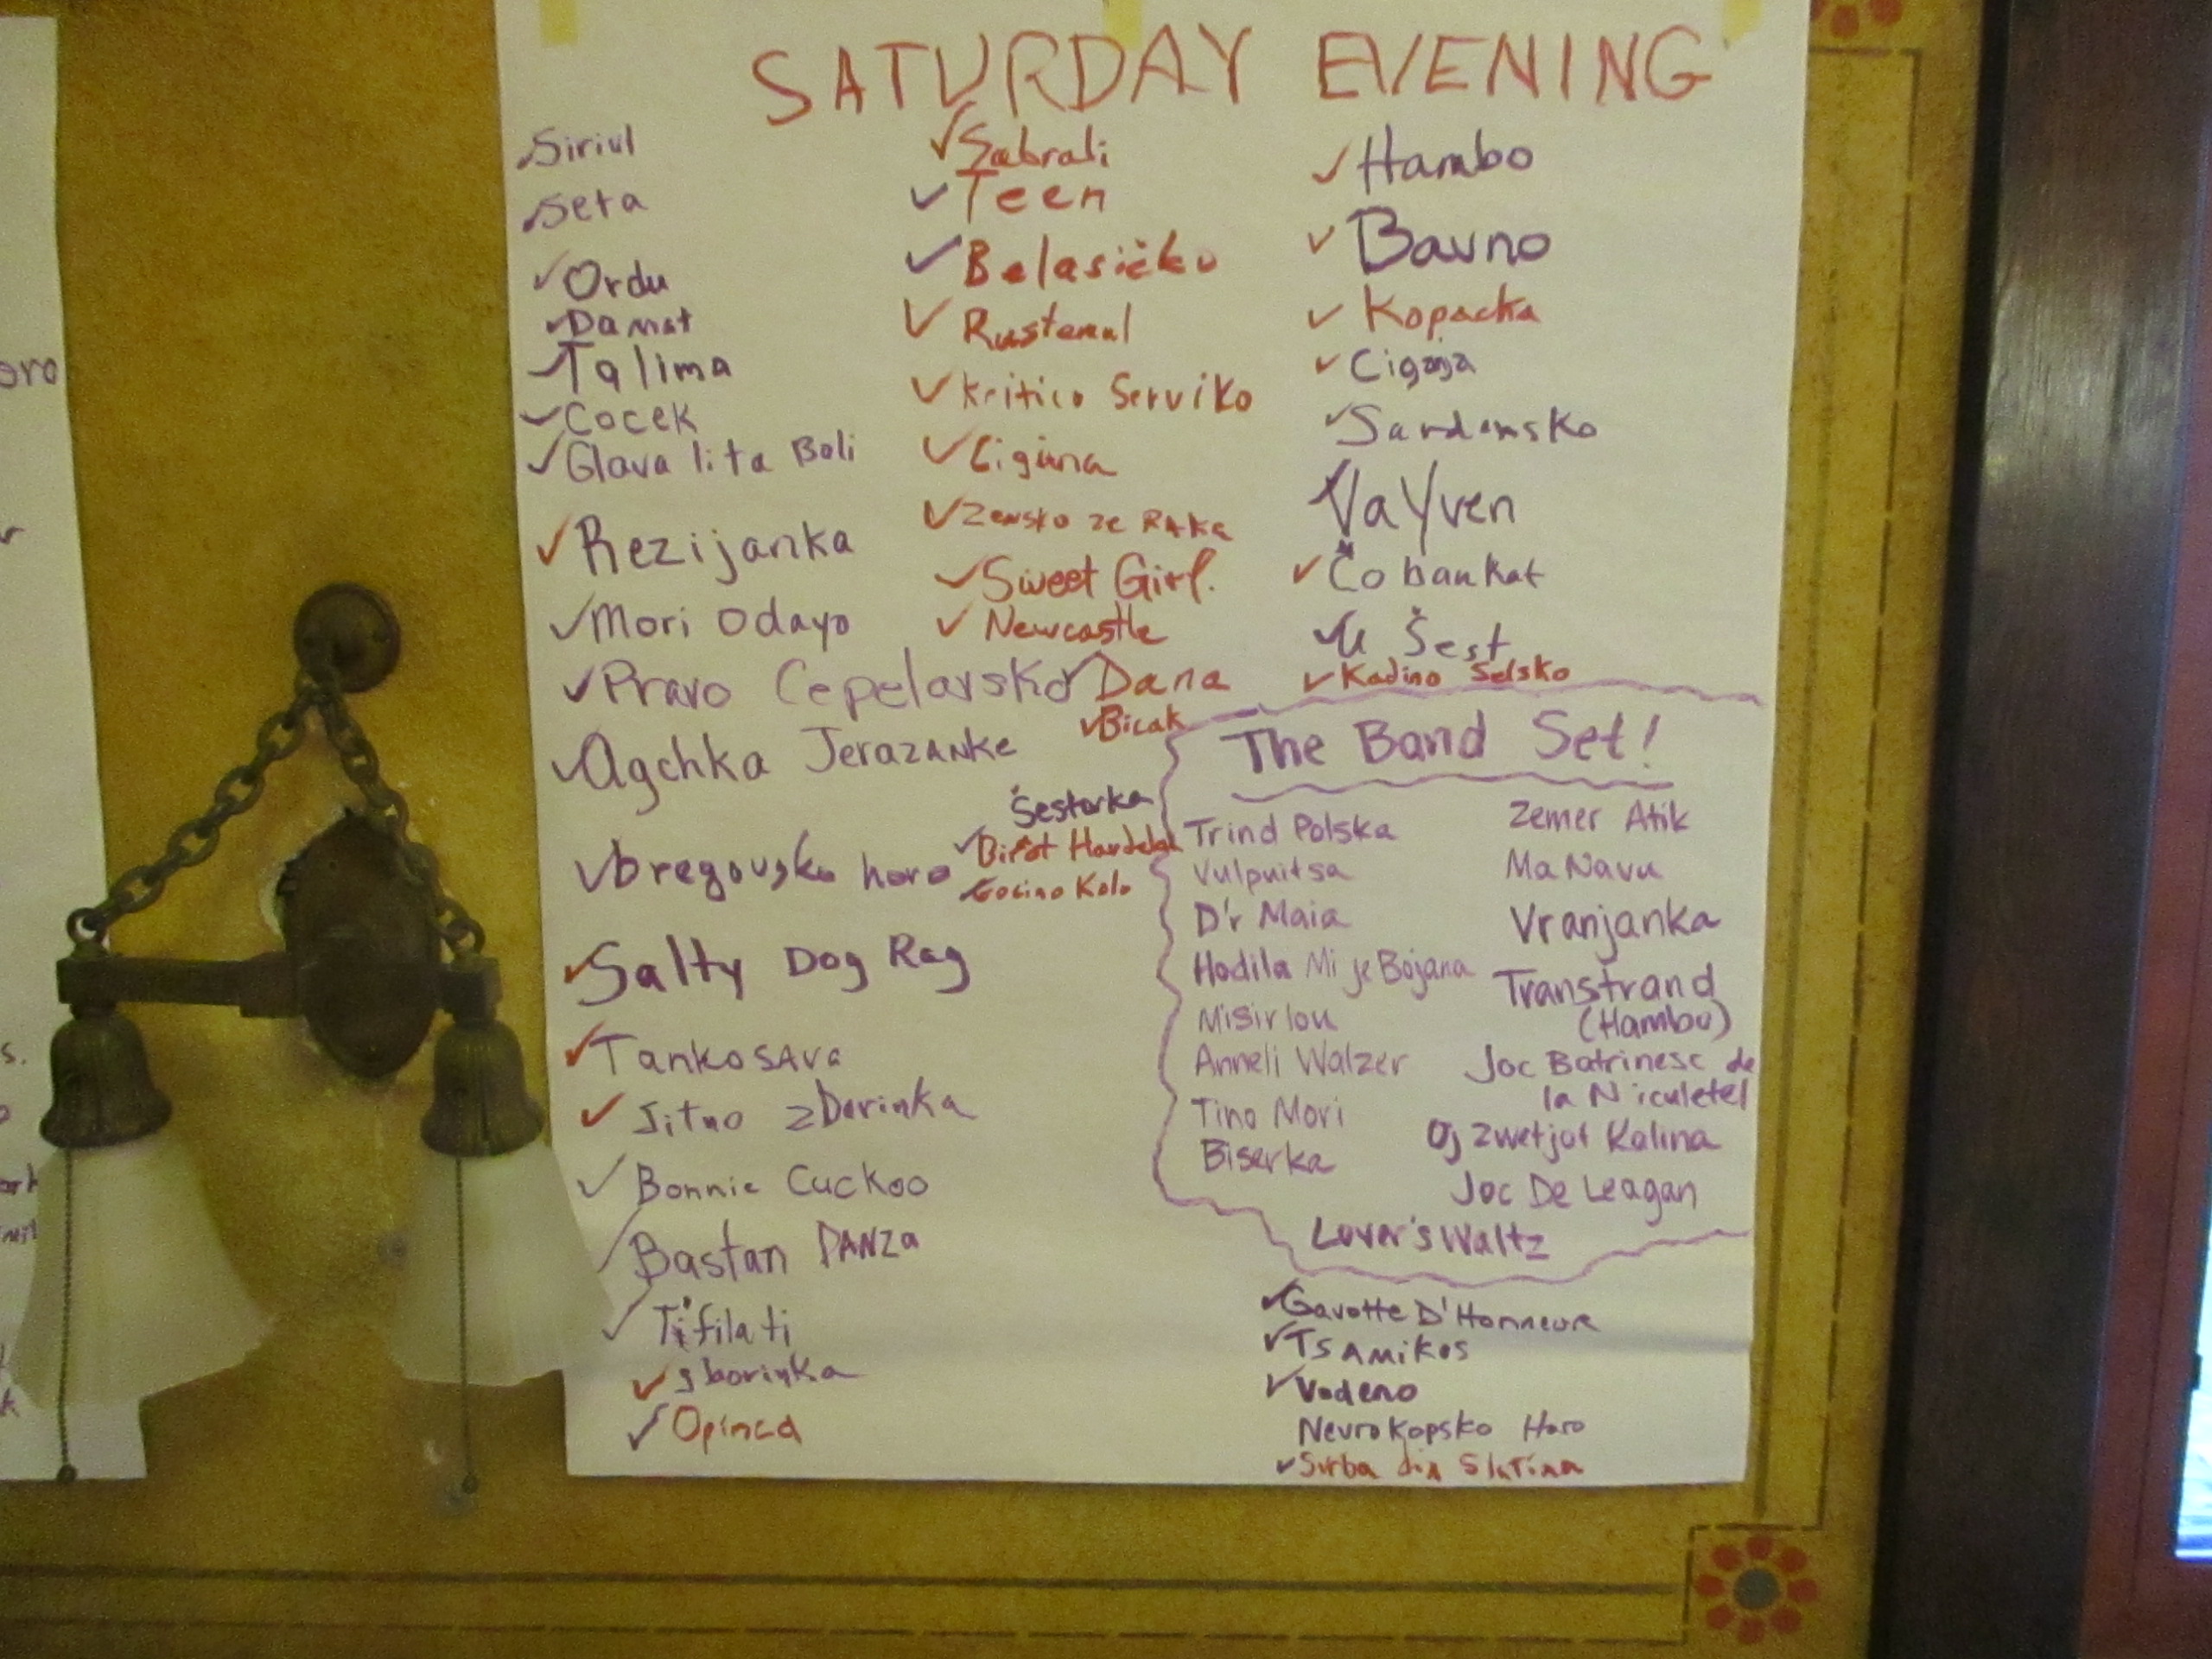 SATURDAY EVENING
✓Siriul
✓Seta
✓Ordu
✓Damat
✓Talima
✓Cocek
✓Glava lita Boli
✓Rezijanka
✓Mori Odayo
✓Pravo Cepelarsko
✓Agchka Jerazanke
✓Dregovsko horo
✓Salty Dog Rag
✓Tankosava
✓Sitno zDorinka
✓Bonnie Cuckoo
✓Bastan DANZa
✓Tifilati
✓Sborinka
✓Opinca
✓Sabrali
✓Teen
✓Belasičko
✓Rustemul
✓Kritico Serviko
✓Cigana
✓Zensko ze Raka
✓Sweet Girl.
✓Newcastle
✓Dana
✓Bicak
Šestorka
✓Birot Hardelat
✓Gocino Kolo
✓Hambo
✓Bavno
✓Kopacka
✓Ciganja
✓Sandansko
✓Vayven
✓Čobankat
✓U Šest
✓Kadino Selsko
The Band Set!
Trind Polska
Vulpuitsa
D'r Maia
Hodila Mi je Bojana
Misirlou
Anneli Walzer
Tino Mori
Biserka
Zemer Atik
Ma Navu
Vranjanka
Transtrand
(Hambo)
Joc Batrinesc de
la Niculetel
Oj Zwetjot Kalina
Joc De Leagan
Lover's Waltz
✓Gavotte D'Honneur
✓Tsamikos
✓Vodeno
Nevrokopsko Horo
✓Sirba din Slatina